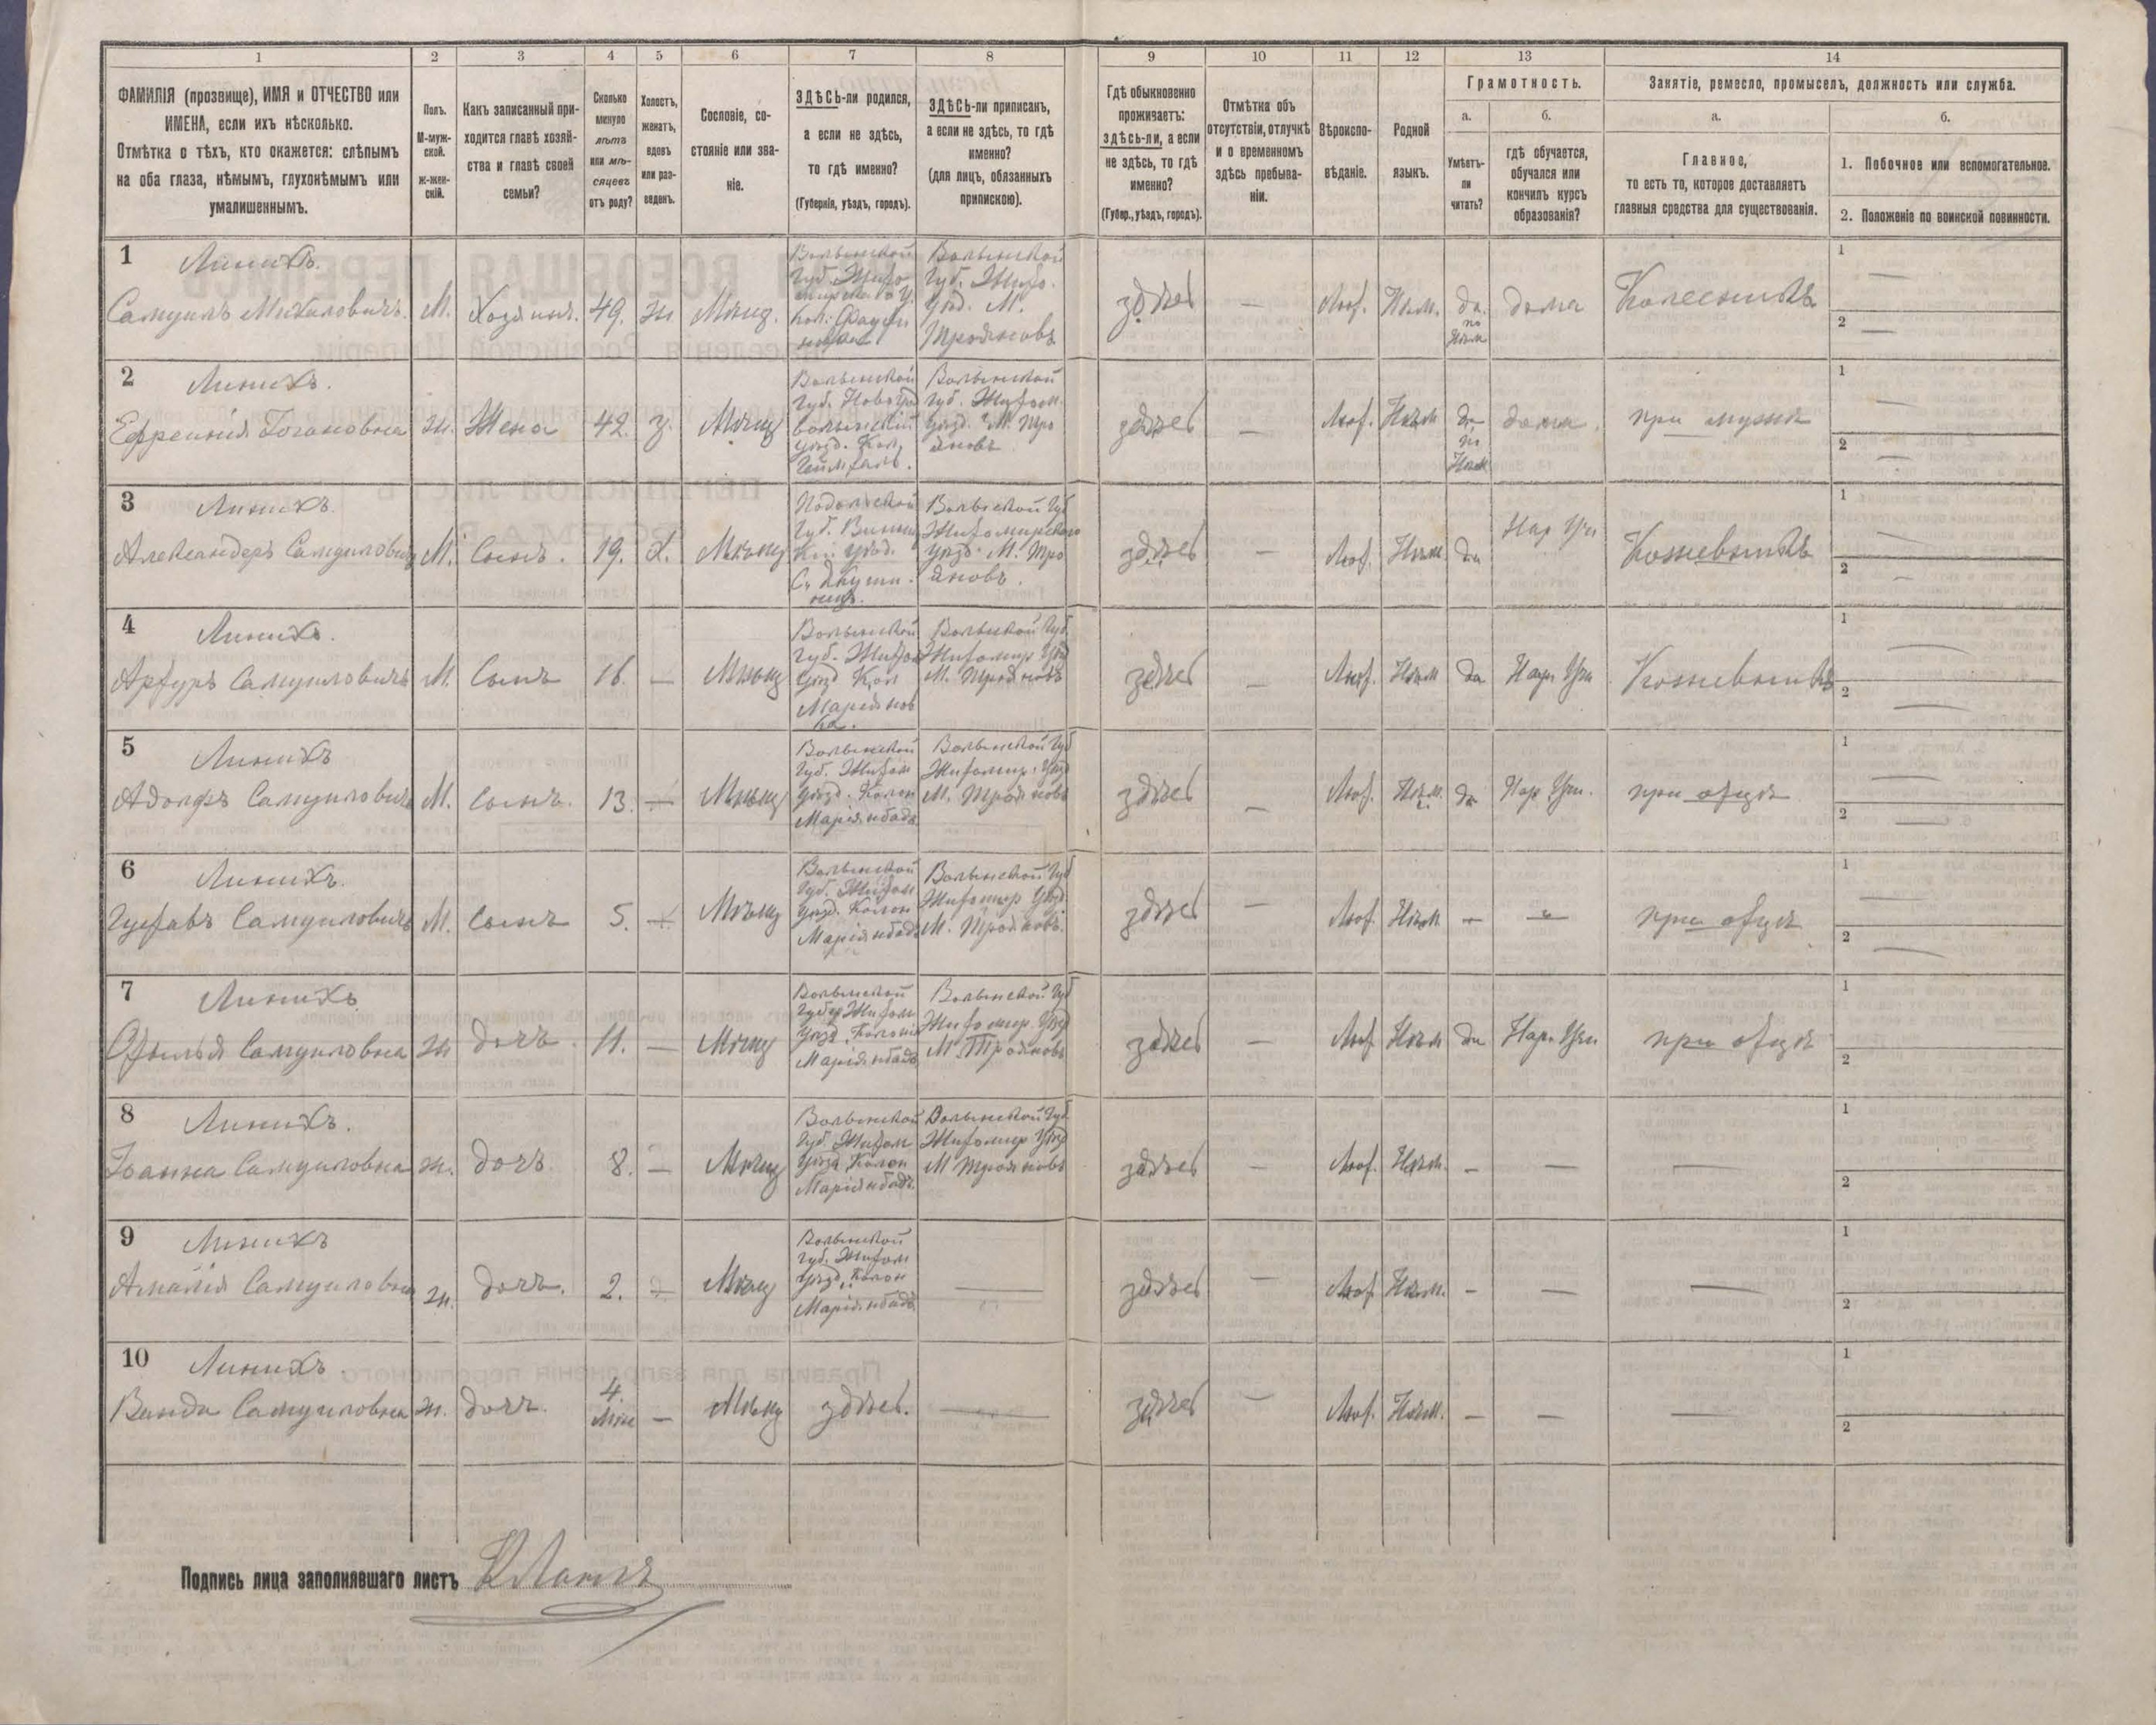 1 2 3 4 5 6 7 8 9 10 11 12 13 14
ФАМИЛІЯ (прозвище), ИМЯ и ОТЧЕСТВО или
ИМЕНА, если ихъ нѣсколько.
Отмѣтка о тѣхъ, кто окажется: слѣпымъ
на оба глаза, нѣмымъ, глухонѣмымъ или
умалишеннымъ.
Полъ.
М-муж-
ской.
ж-жен-
скій.
Какъ записанный при-
ходится главѣ хозяй-
ства и главѣ своей
семьи?
Сколько
минуло
лѣтъ
или мѣ-
сяцевъ
отъ роду?
Холостъ,
женатъ,
вдовъ
или раз-
веденъ.
Сословіе, со-
стояніе или зва-
ніе.
ЗДѢСЬ-ли родился,
а если не здѣсь,
то гдѣ именно?
(Губернія, уѣздъ, городъ).
ЗДѢСЬ-ли приписанъ,
а если не здѣсь, то гдѣ
именно?
(для лицъ, обязанныхъ
припискою).
Гдѣ обыкновенно
проживаетъ:
здѣсь-ли, а если
не здѣсь, то гдѣ
именно?
(Губер., уѣздъ, городъ).
Отмѣтка объ
отсутствіи, отлучкѣ
и о временномъ
здѣсь пребыва-
ніи.
Вѣроиспо-
вѣданіе.
Родной
языкъ.
Грамотность.
а.
Умѣетъ-
ли
читать?
б.
гдѣ обучается,
обучался или
кончилъ курсъ
образованія?
Занятіе, ремесло, промыселъ, должность или служба.
а.
Главное,
то есть то, которое доставляетъ
главныя средства для существованія.
б.
1. Побочное или вспомогательное.
2. Положеніе по воинской повинности.
1 Линихъ.
Самуилъ Михаловичъ. М. Хозяинъ. 49. ж Мѣщ.
Волынской
Губ. Жито-
Волынской
Губ. Жито.
Уѣзд. М.
Трояновъ
здѣсь — Лют. Нѣм. да по Нѣм дома Колесникъ
1 —
2 —
2 Линихъ.
Ефрейнія Іогановна ж. Жена 42. з. Мѣщ
Волынской
губ. Новоград
Волынскій
уѣзд. Кол.
Геймталь.
Волынской
губ. Житом.
уѣзд. М. Тро
яновъ
здѣсь — Лют. Нѣм да по Нѣм дома. при мужѣ
1 —
2 —
3 Линихъ.
Александеръ Самуиловичъ М. Сынъ. 19. Х. Мѣщ
Подольской
Губ. Винни
уѣзд.
Волынской Губ
Житомирскаго
Уѣзд. М. Тро
яновъ.
здѣсь — Лют. Нѣм да Нар Учи Кожевникъ
1 —
2 —
4 Линихъ.
Артуръ Самуиловичъ М. Сынъ 16. — Мѣщ
Волынской
губ. Житом
Уѣзд Кол
Маріянов
ка.
Волынской Губ.
Житомир Уѣзд
М. Трояновъ
здѣсь — Лют. Нѣм да Нар. Учи Кожевникъ
1 —
2 —
5 Линихъ
Адольфъ Самуиловичъ М. сынъ. 13. — Мѣщ
Волынской
Губ. Житом
уѣзд. Колон
Маріянбадъ.
Волынской Губ
Житомир. Уѣзд
М. Трояновъ
здѣсь — Лют. Нѣм. да Нар. Учи. при отцѣ
1 —
2 —
6 Линихъ.
Густавъ Самуиловичъ М. сынъ 5. — Мѣщ
Волынской
Губ. Житом
уѣзд. Колон
Маріянбадъ
Волынской Губ
Житомир Уѣзд.
М. Трояновъ.
здѣсь — Лют. Нѣм — — при отцѣ
1 —
2 —
7 Линихъ
Отилья Самуиловна ж дочь. 11. — Мѣщ
Волынской
Губер Житом
Уѣзд. Колонія
Маріянбадъ
Волынской Губ
Житомир. Уѣзд
М. Трояновъ
здѣсь — Лют Нѣм да Нар. Учи при отцѣ
1
2
8 Линихъ.
Іоанна Самуиловна ж. дочь. 8. — Мѣщ
Волынской
Губ. Житом
Уѣзд. Колон
Маріянбадъ.
Волынской Губ
Житомир Уѣзд
М Трояновъ
здѣсь — Лют. Нѣм. — — —
1
2
9 Линихъ
Амалія Самуиловна ж. дочь. 2. — Мѣщ
Волынской
губ. Житом
Уѣзд. Колон
Маріянбадъ
—
здѣсь — Лют Нѣм. — — —
1
2
10 Линихъ.
Ванда Самуиловна ж. дочь. 4. Мѣс — Мѣщ здѣсь. —
здѣсь — Лют. Нѣм. — — —
1
2
Подпись лица заполнявшаго листъ